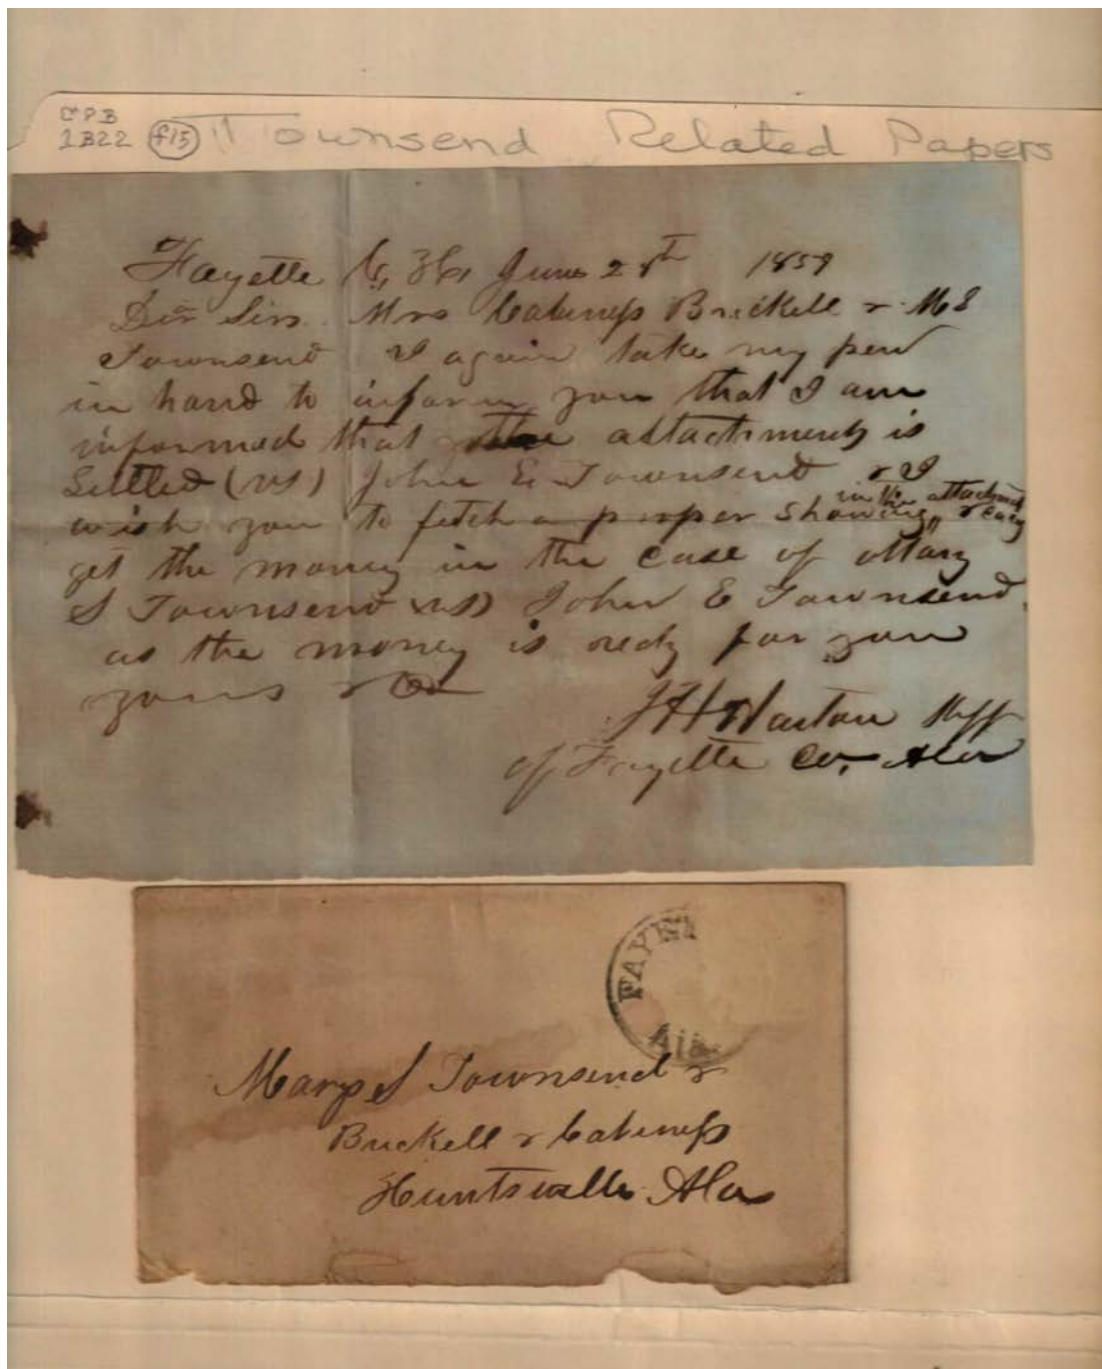 CPB
1B22 f15 Townsend Related Papers
Fayette C, H, June 28th 1859
Der Sirs. Mrs Cabiness Brickell & M S
Townsend I again take my pen
in hand to inform you that I am
informed that the attachment is
Settled (vs) John E. Townsend & I
wish you to fetch a proper showing in the attachmt &
get the money in the case of Mary
S Townsend vs) John E Townsend.
as the money is redy for you
yours &
J H
of Fayette Co, Ala
FAYE
Ala
Mary S Townsend &
Brickell & Cabiness
Huntsville Ala